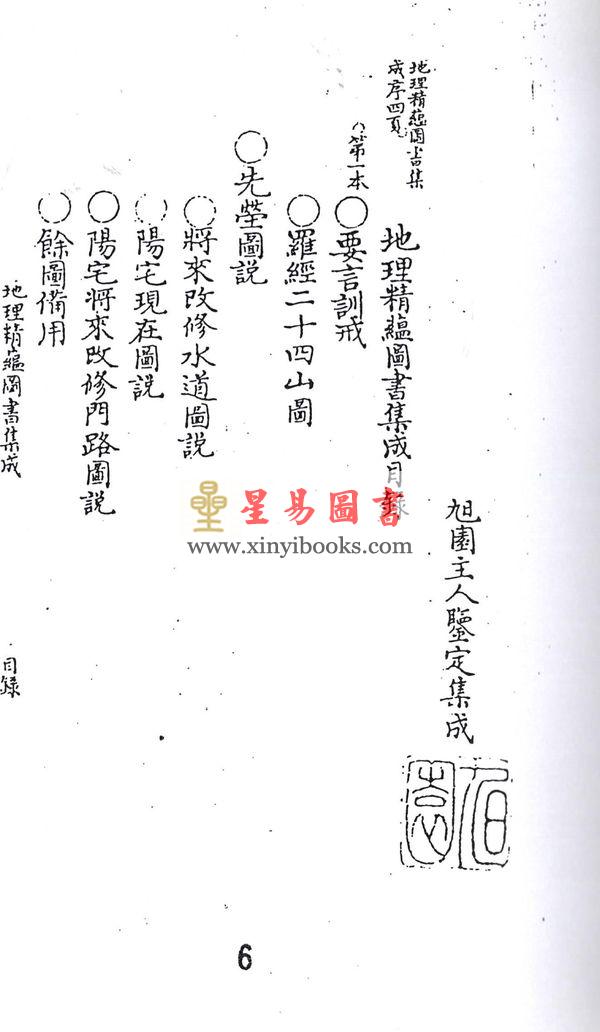 地理精蘊圖書集
成序四頁
旭園主人鑒定集成
旭園
地理精蘊圖書集成目錄
第一本
○要言訓戒
○羅經二十四山圖
○先塋圖説
○將來改修水道圖説
○陽宅現在圖説
○陽宅將來改修門路圖説
○餘圖備用
地理精蘊圖書集成
目錄
星易圖書
www.xinyibooks.com
6